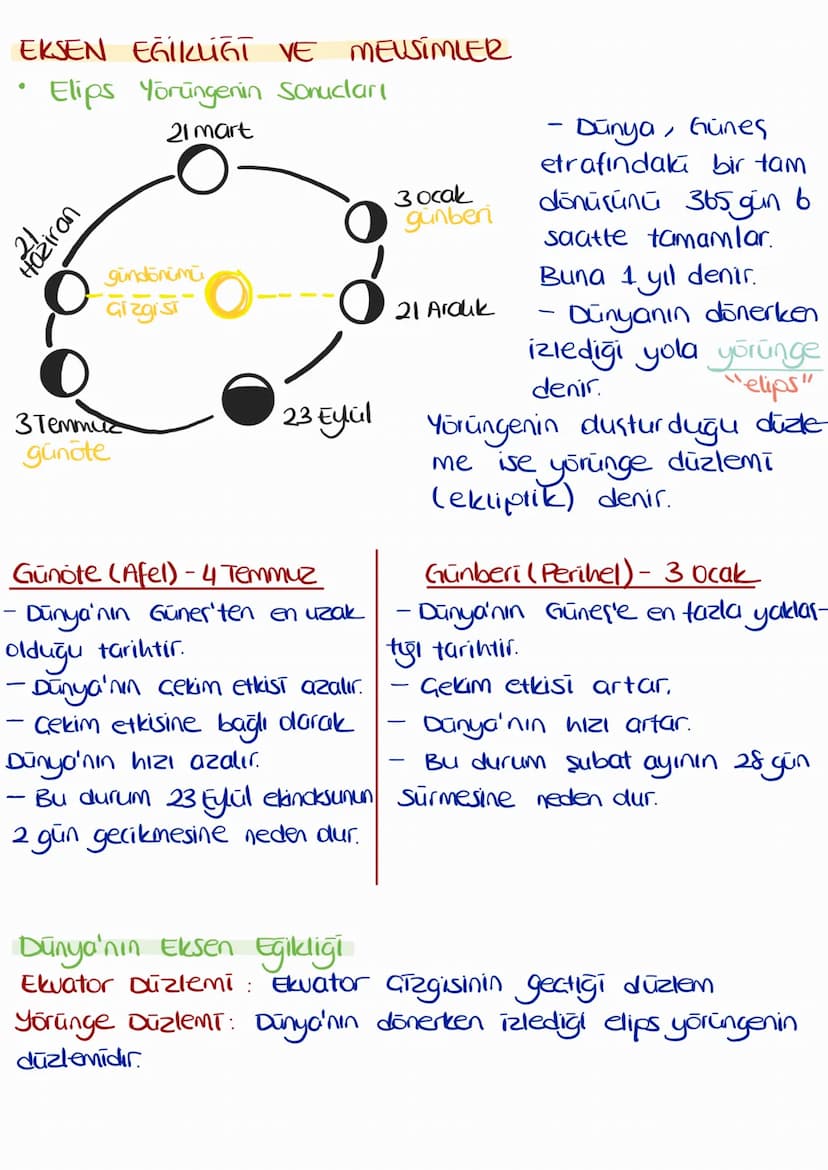 EKSEN EĞİKLİĞİ VE MEVSİMLER
• Elips Yörüngenin Sonuçları
21 mart
3 ocak
günberi
21 Haziran
gündönümü
çizgisi
21 Aralık
3 Temmuz
günöte
23 Eylül
- Dünya, Güneş
etrafındaki bir tam
dönüşünü 365 gün 6
saatte tamamlar.
Buna 1 yıl denir.
- Dünyanın dönerken
izlediği yola yörünge
denir. "elips"
Yörüngenin oluşturduğu düzle-
me ise yörünge düzlemi
(ekliptik) denir.
Günöte (Afel) - 4 Temmuz
- Dünya'nın Güneş'ten en uzak
olduğu tarihtir.
- Dünya'nın çekim etkisi azalır.
- Çekim etkisine bağlı olarak
Dünya'nın hızı azalır.
- Bu durum 23 Eylül ekinoksunun
2 gün gecikmesine neden olur.
Günberi (Perihel) - 3 Ocak
- Dünya'nın Güneş'e en fazla yaklaş-
tığı tarihtir.
- Çekim etkisi artar.
- Dünya'nın hızı artar.
- Bu durum şubat ayının 28 gün
sürmesine neden olur.
Dünya'nın Eksen Eğikliği
Ekvator Düzlemi : Ekvator çizgisinin geçtiği düzlem
Yörünge Düzlemi : Dünya'nın dönerken izlediği elips yörüngenin
düzlemidir.